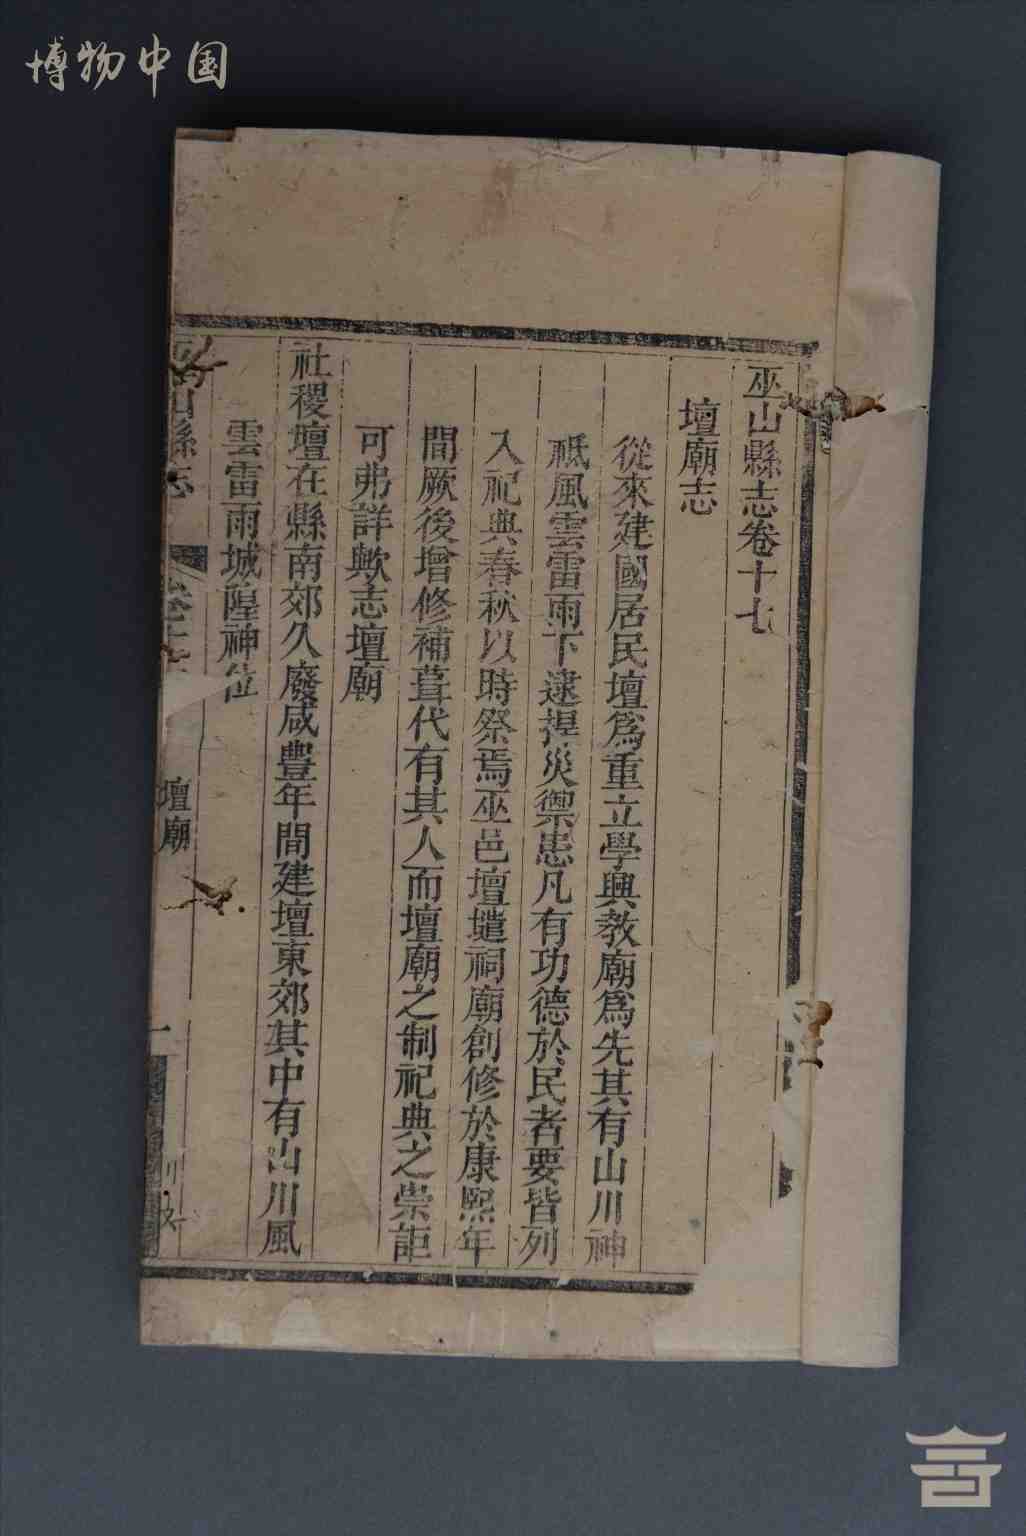 博物中国
巫山縣志卷十七
壇廟志
從來建國居民壇爲重立學興教廟爲先其有山川神
祗風雲雷雨下逮捍災禦患凡有功德於民者要皆列
入祀典春秋以時祭焉巫邑壇壝祠廟創修於康熙年
間厥後增修補葺代有其人而壇廟之制祀典之崇詎
可弗詳歟志壇廟
社稷壇在縣南郊久廢咸豊年間建壇東郊其中有山川風
雲雷雨城隍神位
巫山縣志 卷十七 壇廟 一